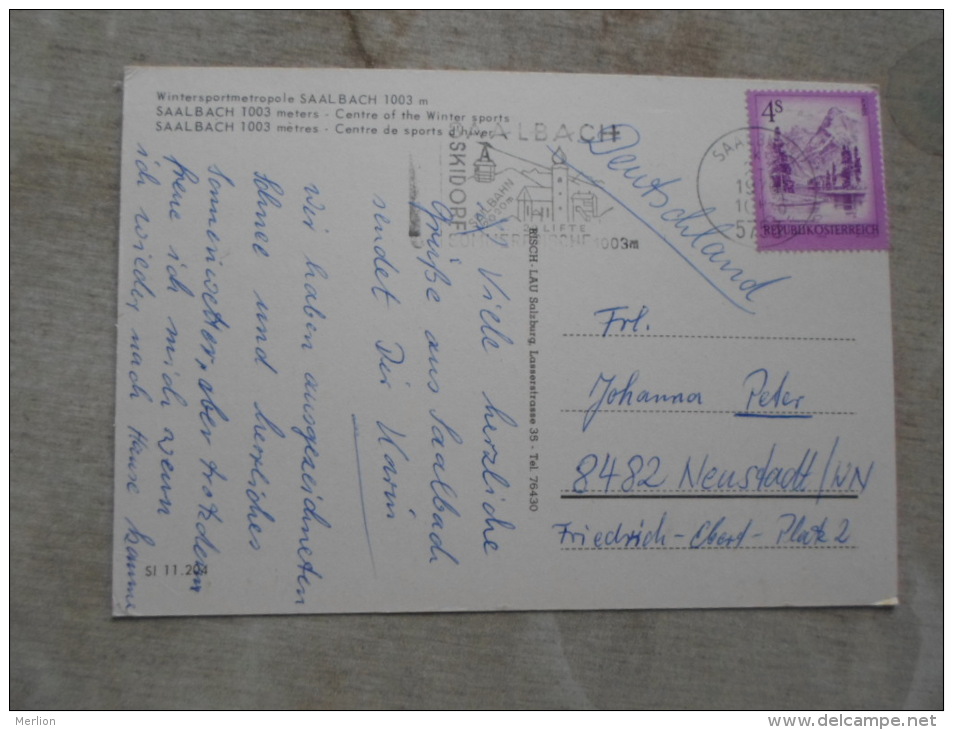 Wintersportmetropole SAALBACH 1003 m
SAALBACH 1003 meters - Centre of the Winter sports
SAALBACH 1003 mètres - Centre de sports d'hiver
SAALBACH
SKIDORF
LIFTE
1003m
4S
REPUBLIK ÖSTERREICH
Deutschland
Viele herzliche
Grüße aus Saalbach
sendet Dir Karin
Wir haben ausgezeichneten
Schnee und herrliches
Sonnenwetter, aber trotzdem
freue ich mich wenn
ich wieder nach Hause komme
RISCH-LAU Salzburg, Lasserstrasse 35 - Tel. 76430
Frl.
Johanna Peter
8482 Neustadt/WN
Friedrich-Ebert-Platz 2
SI 11.204
Merlion
http://www.delcampe.net